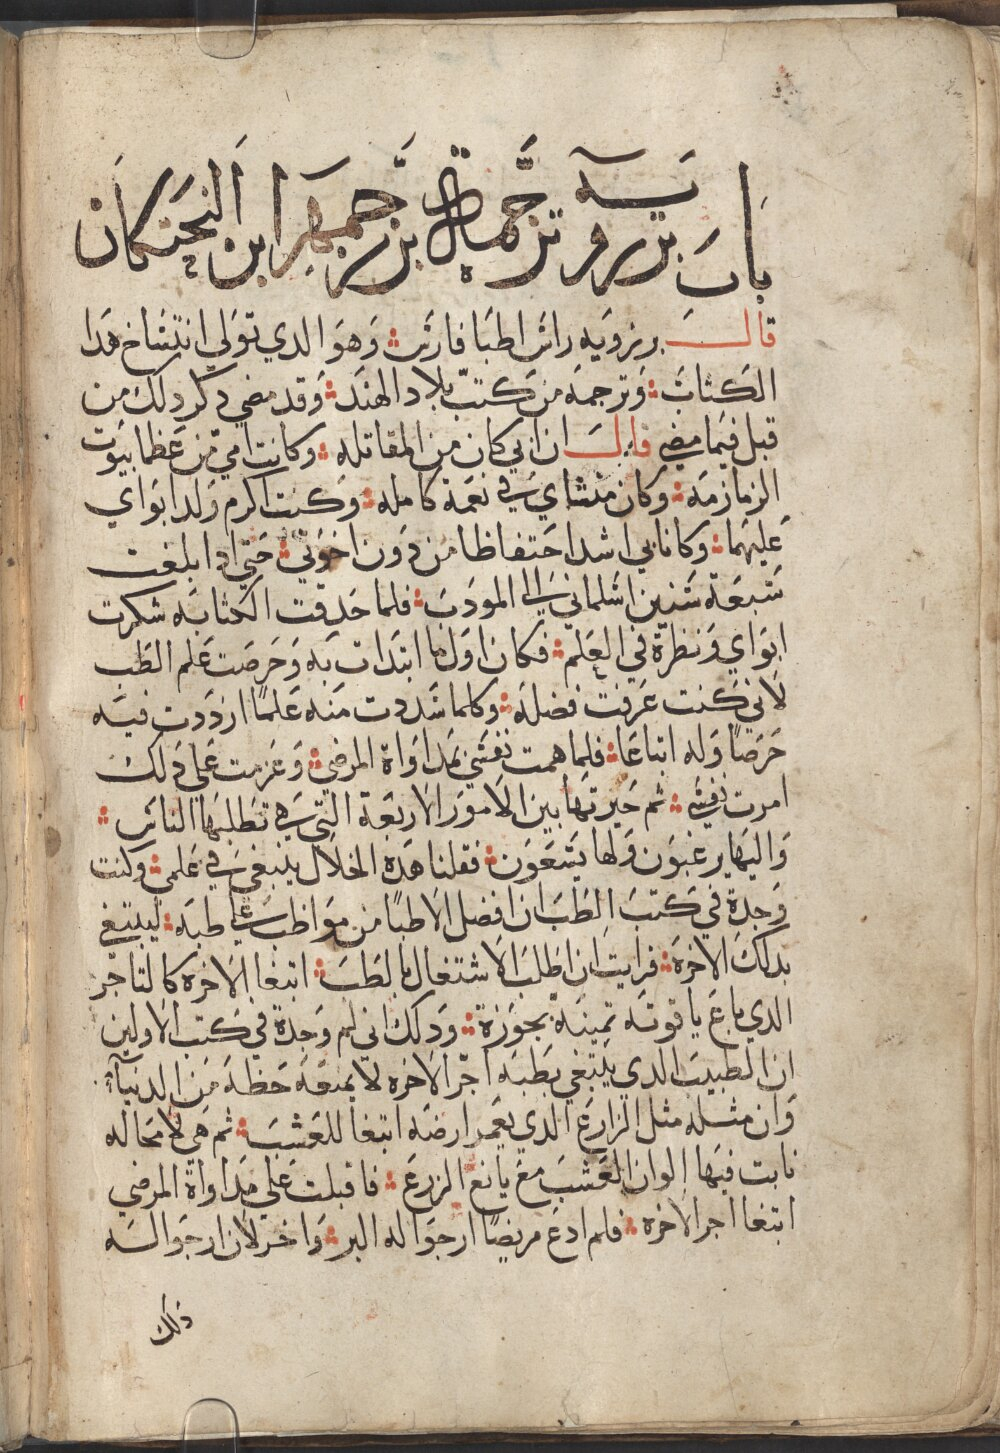 باب برزويه ترجمة بزرجمهر ابن البختكان
قال برزويه راس اطبا فارس وهو الدي تولي انتساخ هدا
الكتاب وترجمه من كتب بلاد الهند وقد مضي دكر دلك من
قبل فيما مضي قال ان ابي كان من المقاتله وكانت امي من عظما بيوت
الزمازمه وكان منشاي في نعمة كامله وكنت اكرم ولد ابواي
عليهما وكانا بي اشد احتفاظا من دون اخوتي حتي ادا بلغت
سبعة سنين اسلماني الي المودب فلما حدقت الكتابه شكرت
ابواي ونظرة في العلم فكان اول ما ابتدات به وحرصت علم الطب
لاني كنت عرفت فضله وكلما شددت منه علما ازددت فيه
حرصا وله اتباعا فلما همت نفسي بمداواة المرضي وعزمت علي دلك
امرت نفسي ثم خيرتها بين الامور الاربعة التي هي تطلبها الناس
واليها يرغبون ولها يسعون فقلنا هده الخلال ينبغي في علمي وكنت
وجدة في كتب الطب ان افضل الاطبا من مواظب علي طبه ليبتغي
بدلك الاخرة فرايت ان اطلب الاشتغال بالطب ابتغا الاخره كالتاجر
الدي باع ياقوته تمينه بجوزة ودلك اني لم وجدة في كتب الاولين
ان الطبيب الدي يبتغي بطبه اجر الاخره لا يمنعه حظه من الدنيا
وان مثله مثل الزارع الدي يعمر ارضه ابتغا للعشب ثم هي لا محاله
نابت فيها الوان العشب مع يانع الزرع فاقبلت علي مداواة المرضي
ابتغا اجر الاخره فلم ادع مريضا ارجوا له البر واخر لان ارجوا له
دلك